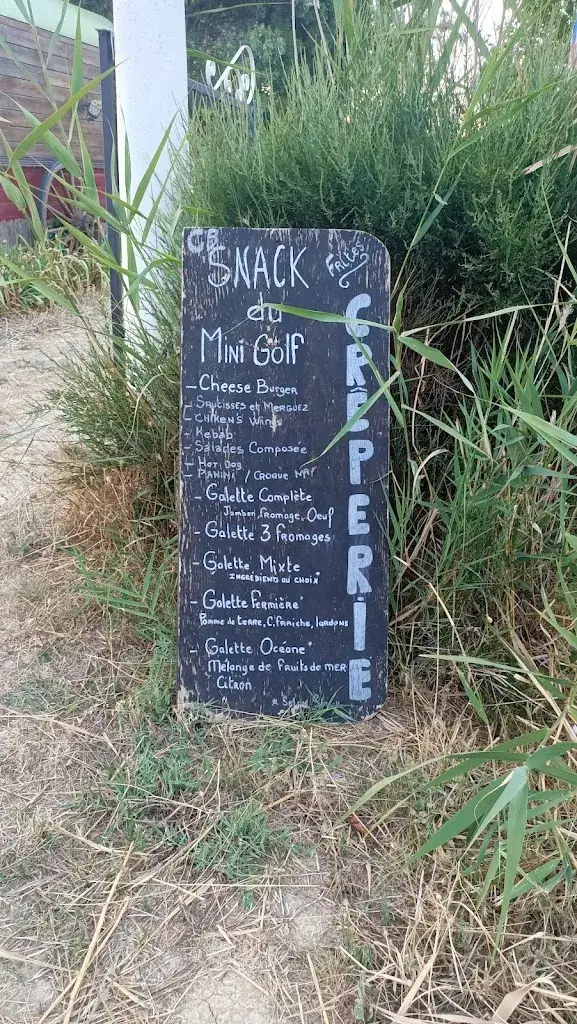 SNACK
du
Mini Golf
- Cheese Burger
- Saucisses et Merguez
- CHIKENS Wings
- Kebab
- Salades Composée
- Hot Dog
- PANINI / CROQUE
- Galette Complète
Jambon, fromage, Oeuf
- Galette 3 fromages
- Galette Mixte
INGRÉDIENTS AU CHOIX
- Galette Fermière
Pomme de terre, C. fraiche, lardons
- Galette Océane
Mélange de fruits de MER
Citron
Frites
CRÊPERIE